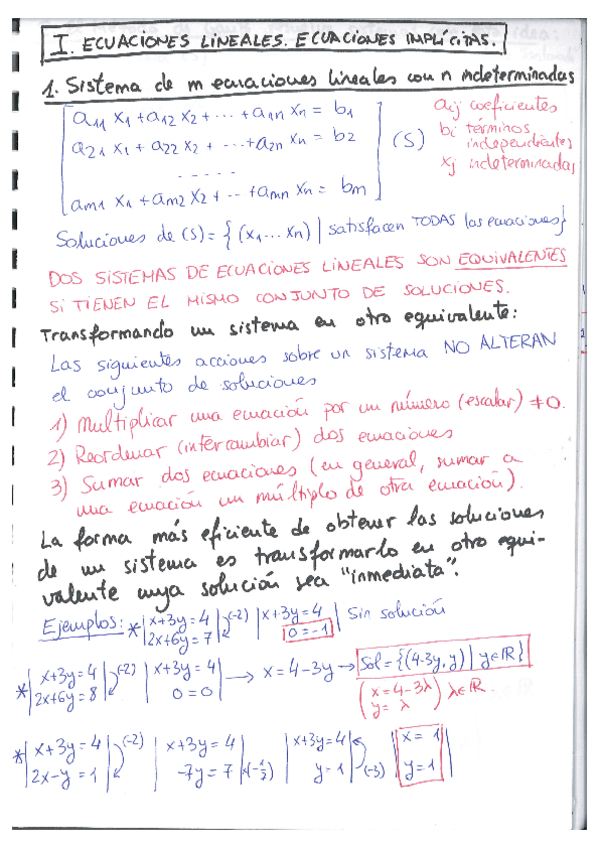 I. ECUACIONES LINEALES. ECUACIONES IMPLÍCITAS.
1. Sistema de m ecuaciones lineales con n indeterminadas
a11 x1 + a12 x2 + ... + a1n xn = b1
a21 x1 + a22 x2 + ... + a2n xn = b2
.....
am1 x1 + am2 x2 + ... + amn xn = bm
(S)
aij coeficientes
bi términos
independientes
xj indeterminadas
Soluciones de (S) = { (x1 ... xn) | satisfacen TODAS las ecuaciones}
DOS SISTEMAS DE ECUACIONES LINEALES SON EQUIVALENTES
SI TIENEN EL MISMO CONJUNTO DE SOLUCIONES.
Transformando un sistema en otro equivalente:
Las siguientes acciones sobre un sistema NO ALTERAN
el conjunto de soluciones
1) Multiplicar una ecuación por un número (escalar) ≠ 0.
2) Reordenar (intercambiar) dos ecuaciones
3) Sumar dos ecuaciones (en general, sumar a
una ecuación un múltiplo de otra ecuación).
La forma más eficiente de obtener las soluciones
de un sistema es transformarlo en otro equi-
valente cuya solución sea "inmediata".
Ejemplos: * | x+3y=4 | (-2) | x+3y=4 | Sin solución
| 2x+6y=7 | | 0=-1 |
* | x+3y=4 | (-2) | x+3y=4 | → x=4-3y → Sol={(4-3y,y) | y∈ℝ}
| 2x+6y=8 | | 0=0 | ( x=4-3λ
y=λ ) λ∈ℝ.
* | x+3y=4 | (-2) | x+3y=4 | | x+3y=4 | | x=1 |
| 2x-y=1 | | -7y=7 | x(-1/7) | y=1 | (-3) | y=1 |